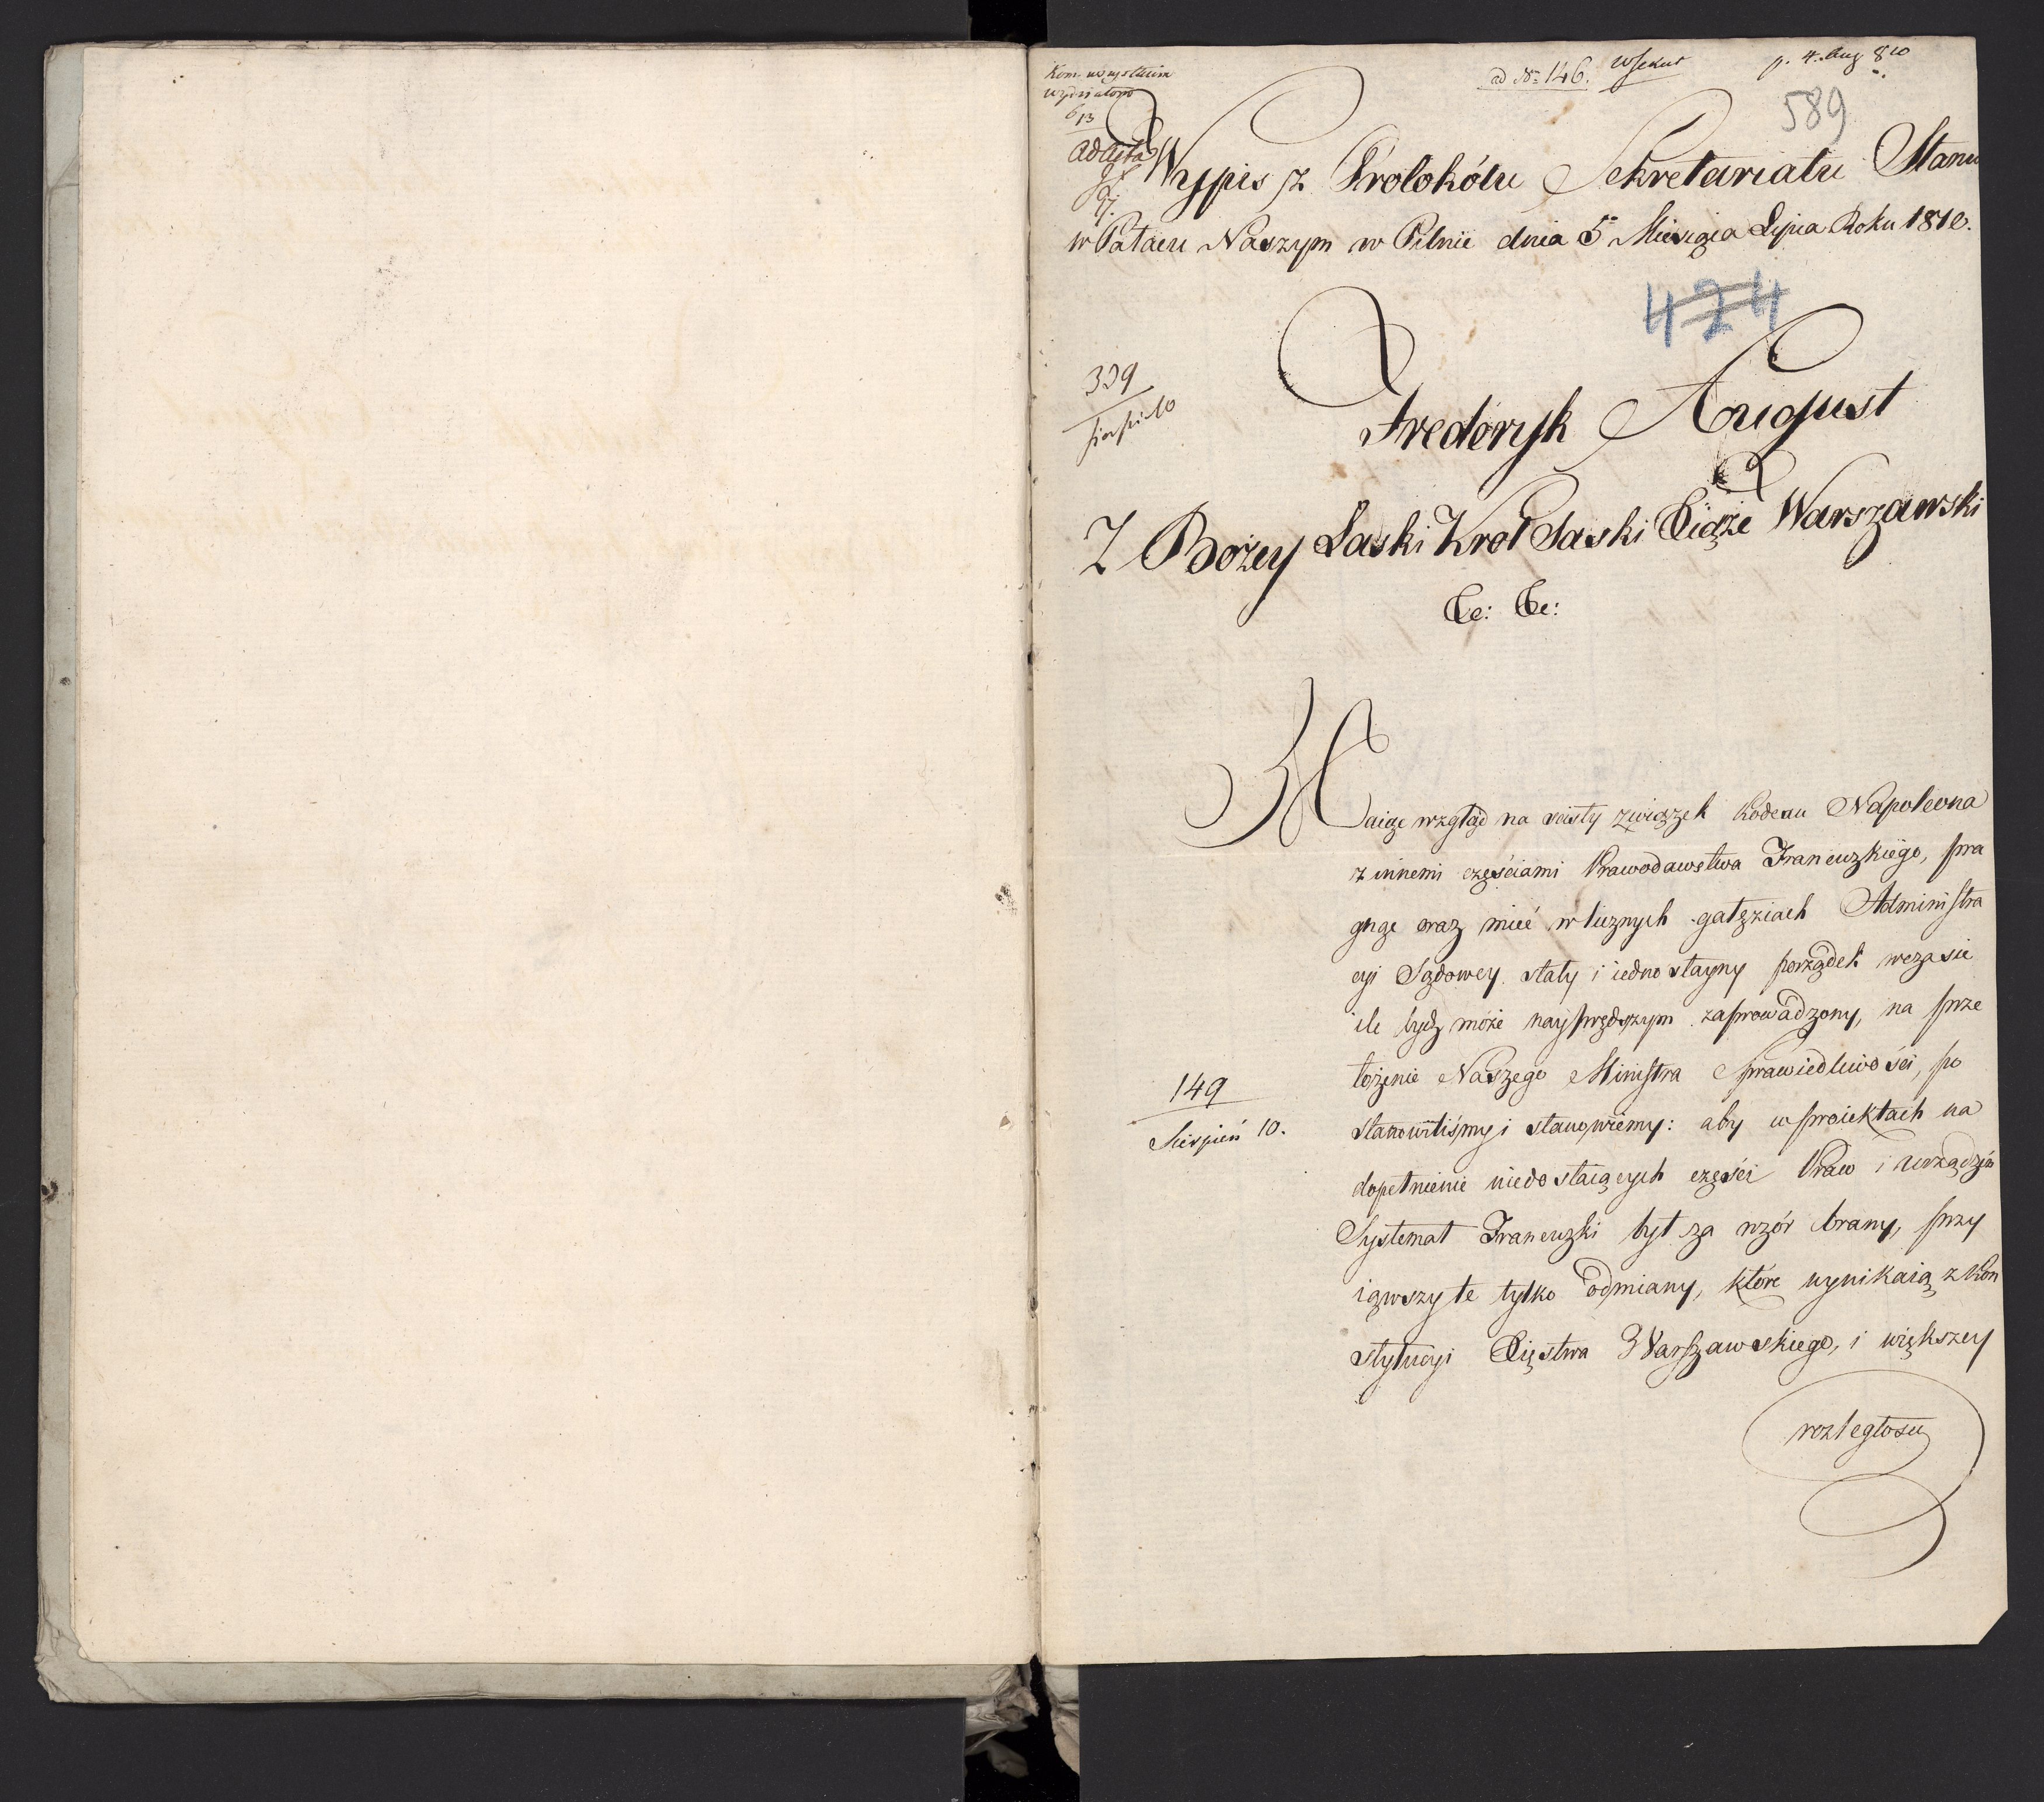 ad Nro 146.
p. 4. Aug 810
589
ad acta
Wypis z Protokółu Sekretariatu Stanu
w Pałacu Naszym w Pilnic dnia 5 Miesiąca Lipca Roku 1810.
424
339
Frederyk August
Z Bożey Łaski Krol Saski Xiąże Warszawski
&c: &c:
Maiąc wzgląd na scisły związek Kodexu Napoleona
z innemi częściami Prawodawstwa Francuzkiego, pra
gnąc oraz mieć w licznych gałęziach Administra
cyi Sądowey stały i iednostayny porządek w czasie
ile bydź może nayprędszym zaprowadzony, na prze
łożenie Naszego Ministra Sprawiedliwości, po
149
Sierpień 10.
stanowiliśmy i stanowiemy: aby w proiektach na
dopełnienie niedostaiących części Praw i urządzeń
Systemat Francuzki był za wzór brany, przy
iąwszy te tylko odmiany, które wynikaią z Kon
stytucyi Xięstwa Warszawskiego, i większey
rozległosci